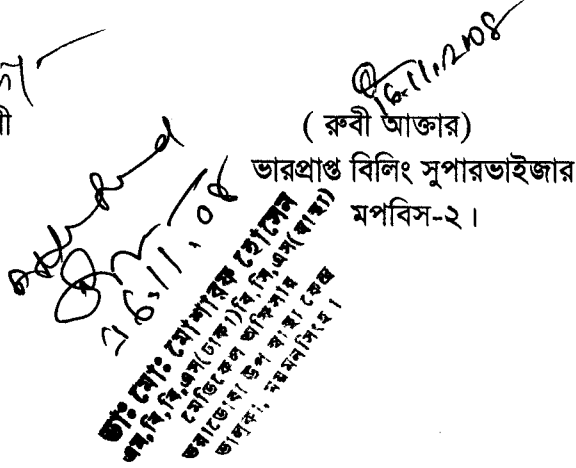 ১6.11.2008
( রুবী আক্তার)
ভারপ্রাপ্ত বিলিং সুপারভাইজার
মপবিস-২।
ী
২6.11.08
ডাঃ মোঃ মোশারফ হোসেন
এম,বি,বি,এস(ঢাকা)বি,সি,এস(স্বাস্থ্য)
মেডিকেল অফিসার
ভরাডোবা উপ স্বাস্থ্য কেন্দ্র
ভালুকা, ময়মনসিংহ।